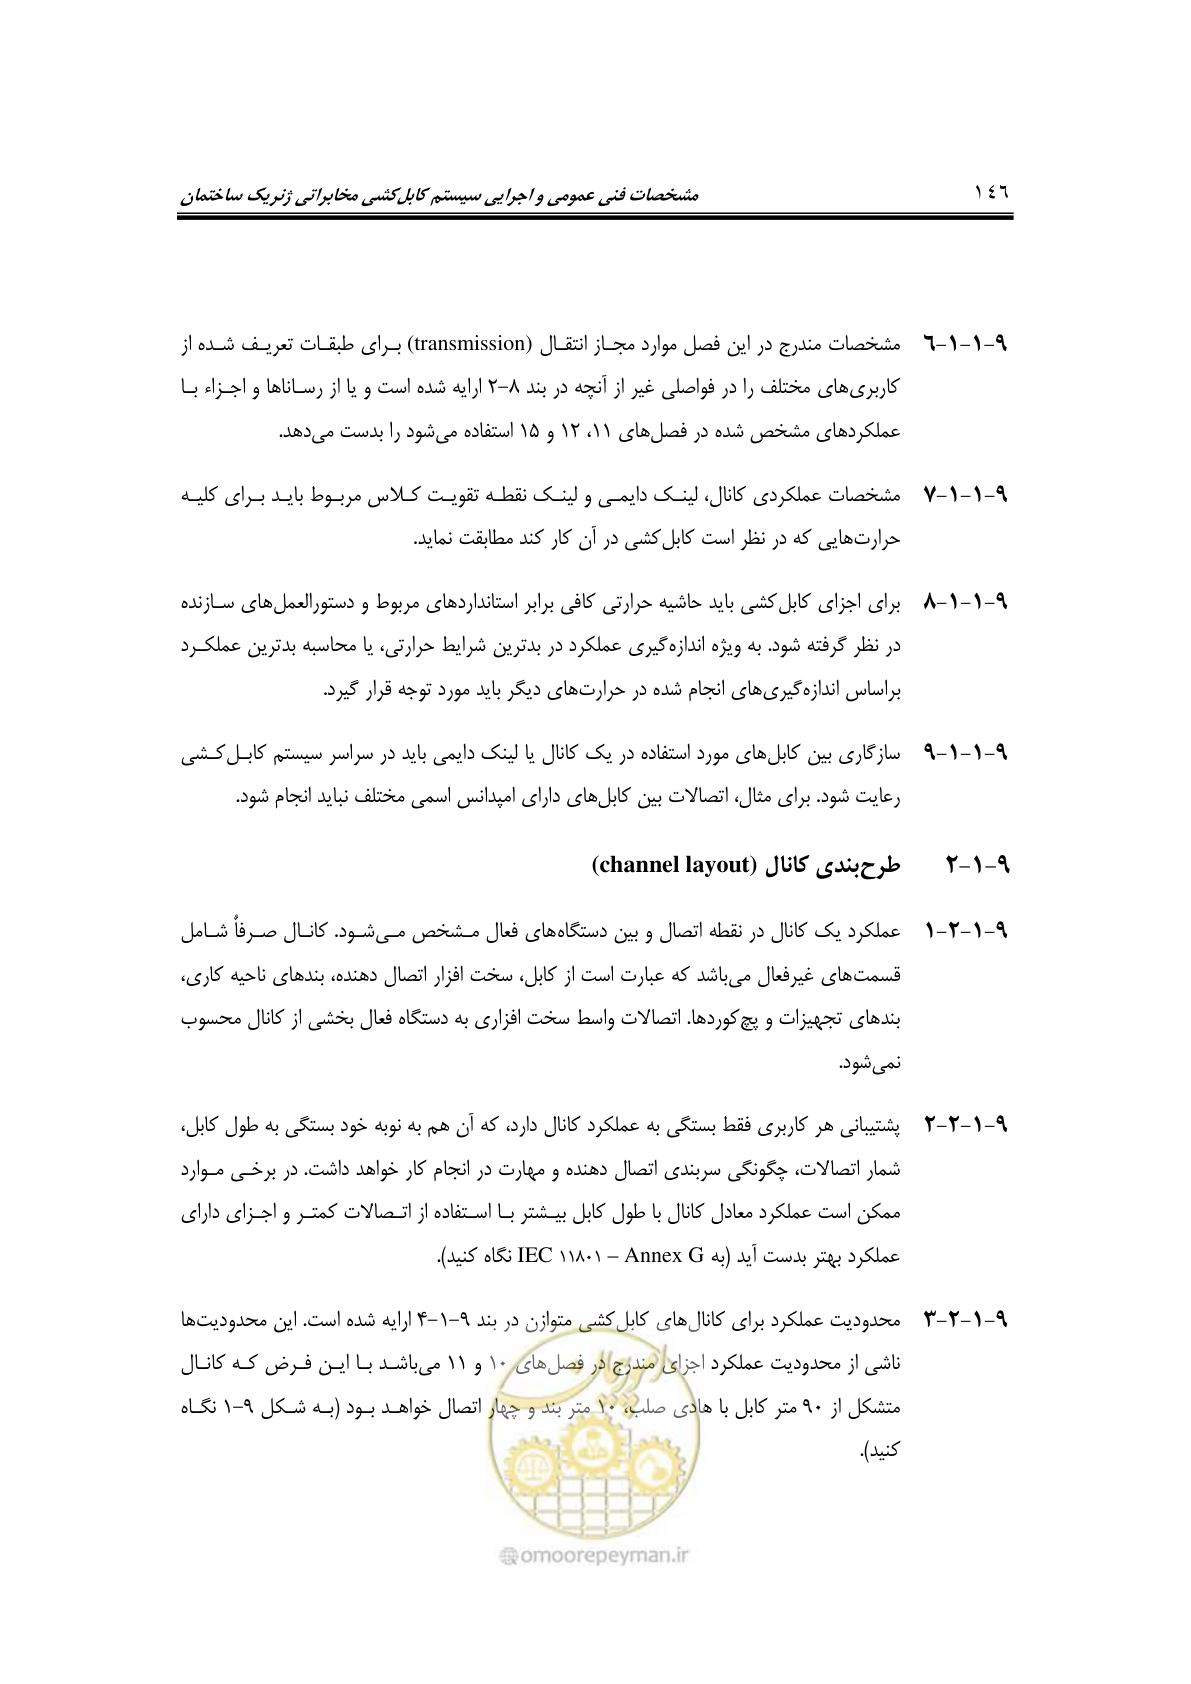 ۱۴۶ مشخصات فنی عمومی و اجرایی سیستم کابل‌کشی مخابراتی ژنریک ساختمان
۹-۱-۱-۶ مشخصات مندرج در این فصل موارد مجاز انتقال (transmission) برای طبقات تعریف شده از
کاربری‌های مختلف را در فواصلی غیر از آنچه در بند ۸-۲ ارایه شده است و یا از رساناها و اجزاء با
عملکردهای مشخص شده در فصل‌های ۱۱، ۱۲ و ۱۵ استفاده می‌شود را بدست می‌دهد.
۹-۱-۱-۷ مشخصات عملکردی کانال، لینک دایمی و لینک نقطه تقویت کلاس مربوط باید برای کلیه
حرارت‌هایی که در نظر است کابل‌کشی در آن کار کند مطابقت نماید.
۹-۱-۱-۸ برای اجزای کابل‌کشی باید حاشیه حرارتی کافی برابر استانداردهای مربوط و دستورالعمل‌های سازنده
در نظر گرفته شود. به ویژه اندازه‌گیری عملکرد در بدترین شرایط حرارتی، یا محاسبه بدترین عملکرد
براساس اندازه‌گیری‌های انجام شده در حرارت‌های دیگر باید مورد توجه قرار گیرد.
۹-۱-۱-۹ سازگاری بین کابل‌های مورد استفاده در یک کانال یا لینک دایمی باید در سراسر سیستم کابل‌کشی
رعایت شود. برای مثال، اتصالات بین کابل‌های دارای امپدانس اسمی مختلف نباید انجام شود.
۹-۱-۲ طرح‌بندی کانال (channel layout)
۹-۱-۲-۱ عملکرد یک کانال در نقطه اتصال و بین دستگاه‌های فعال مشخص می‌شود. کانال صرفاً شامل
قسمت‌های غیرفعال می‌باشد که عبارت است از کابل، سخت افزار اتصال دهنده، بندهای ناحیه کاری،
بندهای تجهیزات و پچ‌کوردها. اتصالات واسط سخت افزاری به دستگاه فعال بخشی از کانال محسوب
نمی‌شود.
۹-۱-۲-۲ پشتیبانی هر کاربری فقط بستگی به عملکرد کانال دارد، که آن هم به نوبه خود بستگی به طول کابل،
شمار اتصالات، چگونگی سربندی اتصال دهنده و مهارت در انجام کار خواهد داشت. در برخی موارد
ممکن است عملکرد معادل کانال با طول کابل بیشتر با استفاده از اتصالات کمتر و اجزای دارای
عملکرد بهتر بدست آید (به IEC ۱۱۸۰۱ – Annex G نگاه کنید).
۹-۱-۲-۳ محدودیت عملکرد برای کانال‌های کابل‌کشی متوازن در بند ۹-۱-۴ ارایه شده است. این محدودیت‌ها
ناشی از محدودیت عملکرد اجزای مندرج در فصل‌های ۱۰ و ۱۱ می‌باشد با این فرض که کانال
متشکل از ۹۰ متر کابل با هادی صلب، ۱۰ متر بند و چهار اتصال خواهد بود (به شکل ۹-۱ نگاه
کنید).
امور پیمان
omoorepeyman.ir